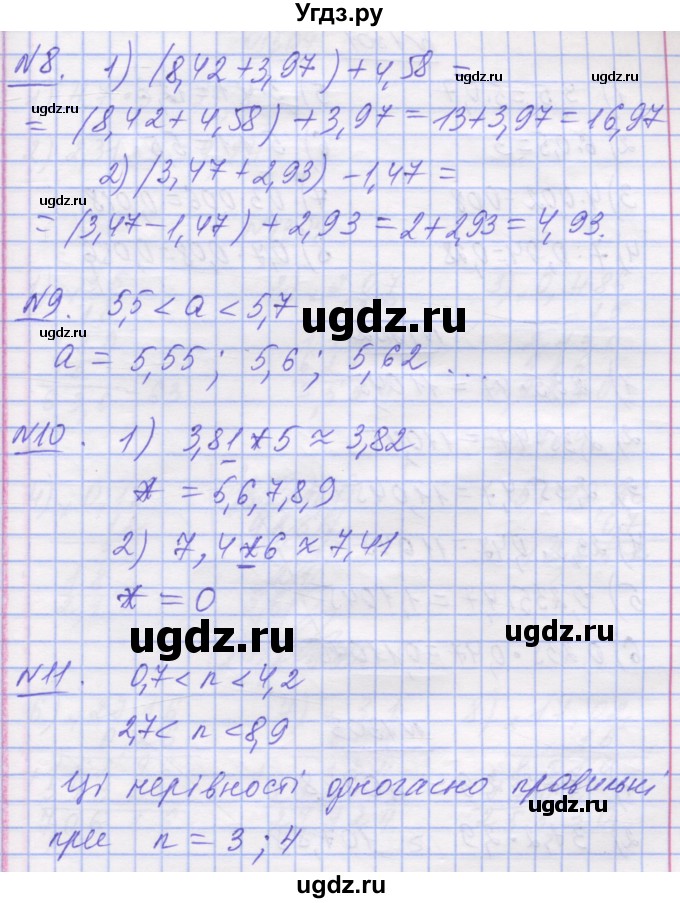 Угдз.ру
№8. 1) (8,42+3,97)+4,58=
= (8,42+4,58)+3,97=13+3,97=16,97
2) (3,47+2,93)-1,47=
= (3,47-1,47)+2,93=2+2,93=4,93.
№9. 5,5<a<5,7
a=5,55; 5,6; 5,62...
№10. 1) 3,81*5≈3,82
*=5,6,7,8,9
2) 7,4*6≈7,41
*=0
№11. 0,7<n<4,2
2,7<n<8,9
Ці нерівності одночасно правильні
при n=3;4
ugdz.ru
ugdz.ru
ugdz.ru
ugdz.ru
ugdz.ru
ugdz.ru
ugdz.ru
ugdz.ru
ugdz.ru
ugdz.ru
ugdz.ru
ugdz.ru
ugdz.ru